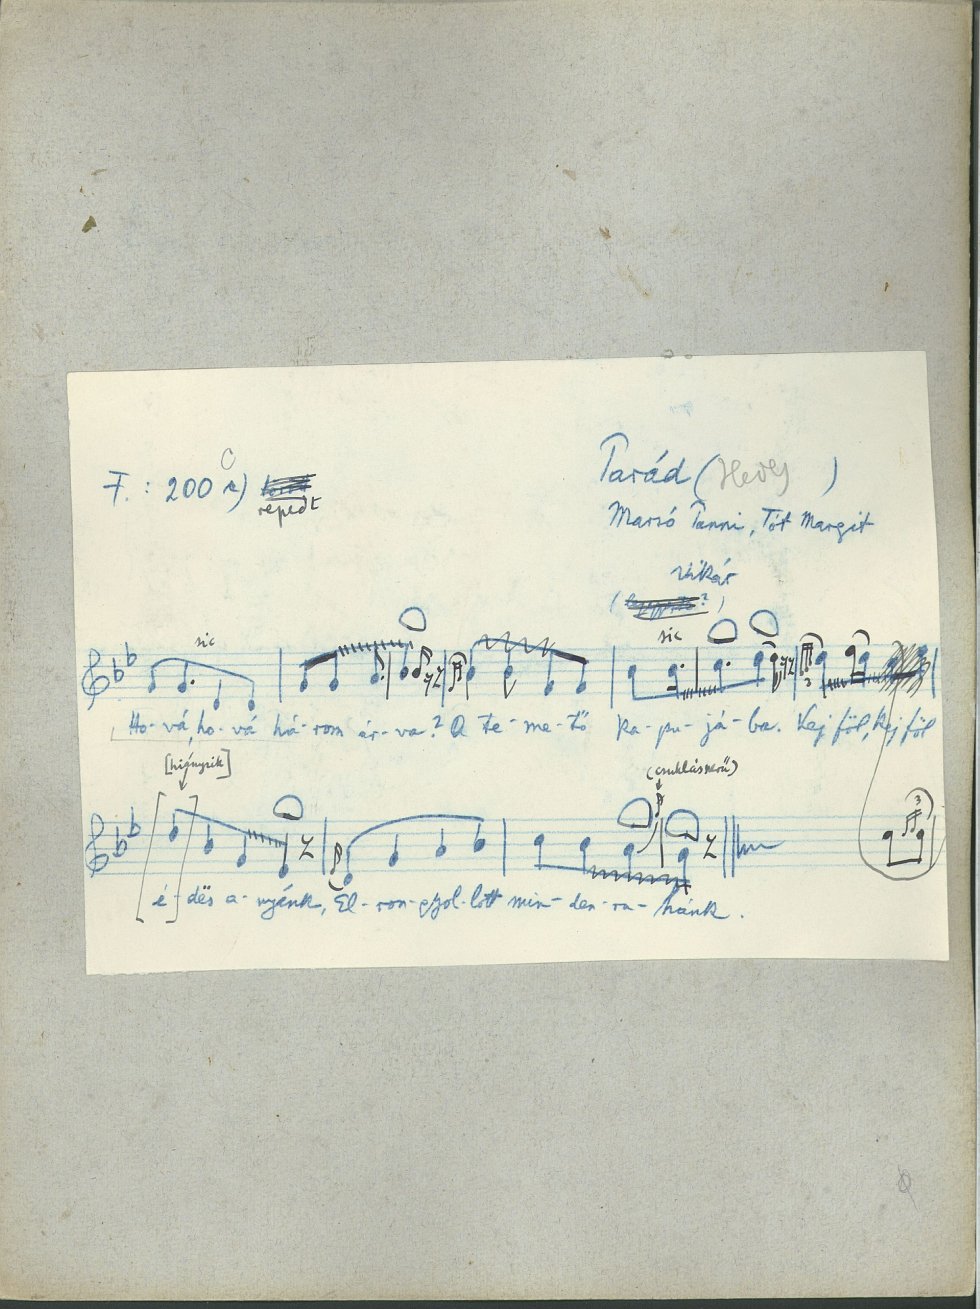 F.: 200 c)
repedt
Parád (Heves )
Marsó Panni, Tót Margit
Vikár
sic sic
Ho-vá, ho-vá há-rom ár-va? A te-me-tő ka-pu-já-ba. Kej föl, kej föl
3
[hiányzik] (csuklásszerű)
3
[é-]dës a-nyénk, El-ron-gyol-lott min-den-ru-hánk.